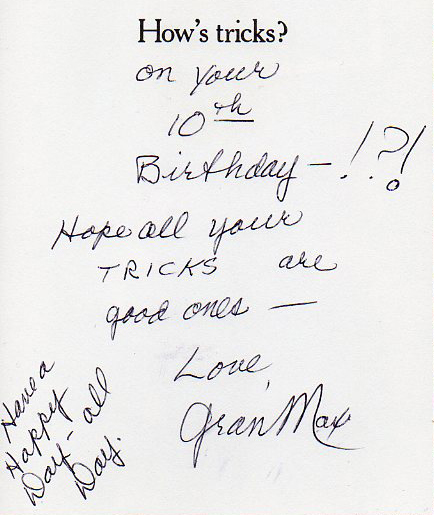 How's tricks?
on your
10th
Birthday — !?!
Hope all your
TRICKS are
good ones —
Love,
Gran Max
Have a
Happy
Day - all
Day.